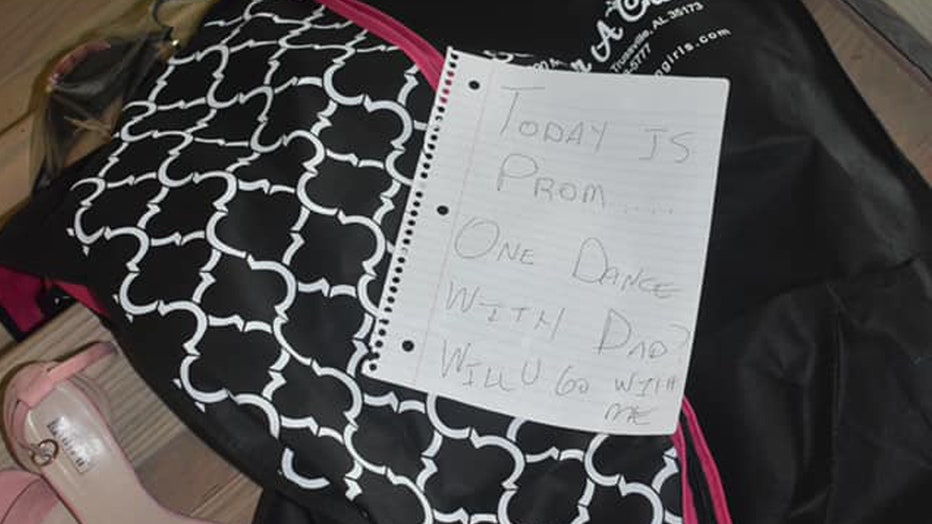 A
Trussville, AL 35173
-5777
ngirls.com
TODAY IS
PROM......
ONE DANCE
WITH DAD?
WILL U GO WITH
ME